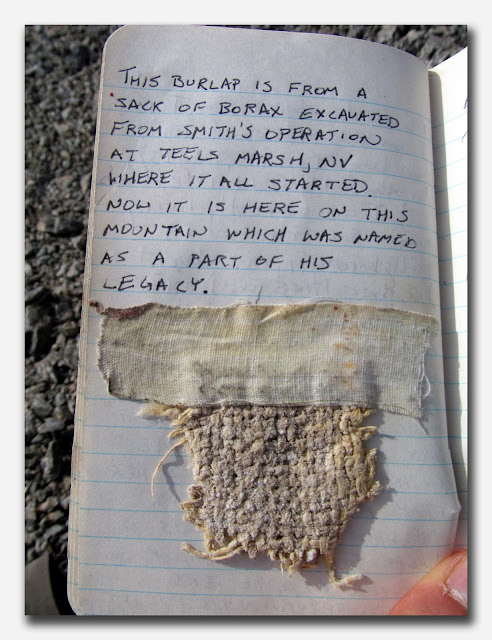 THIS BURLAP IS FROM A
SACK OF BORAX EXCAVATED
FROM SMITH'S OPERATION
AT TEELS MARSH, NV
WHERE IT ALL STARTED.
NOW IT IS HERE ON THIS
MOUNTAIN WHICH WAS NAMED
AS A PART OF HIS
LEGACY.